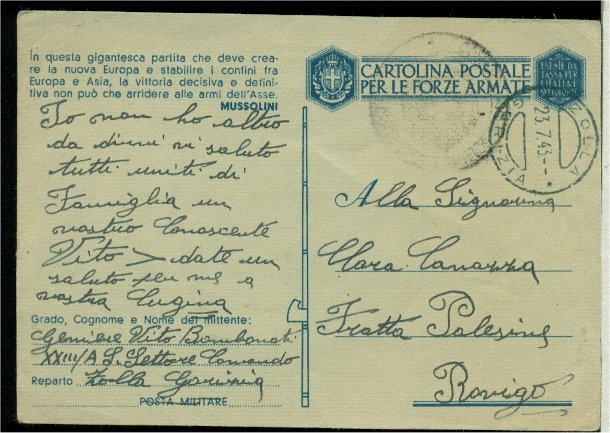 In questa gigantesca partita che deve crea-
re la nuova Europa e stabilire i confini fra
Europa e Asia, la vittoria decisiva e defini-
tiva non può che arridere alle armi dell'Asse.
MUSSOLINI
Io non ho altro
da dirvi vi saluto
tutti uniti di
Famiglia un
vostro Conoscente
Vito > date un
saluto per me a
vostra Cugina
Grado, Cognome e Nome del mittente:
Geniere Vito Bombonati
XXIII/A S. Settore Comando
Reparto Zolla Gorizia
POSTA MILITARE
CARTOLINA POSTALE
PER LE FORZE ARMATE
ESENTE DA
TASSA PER
ZOLLA
23.7.43
GORIZIA
Alla Signorina
Clara Canazza
Fratta Polesine
Rovigo